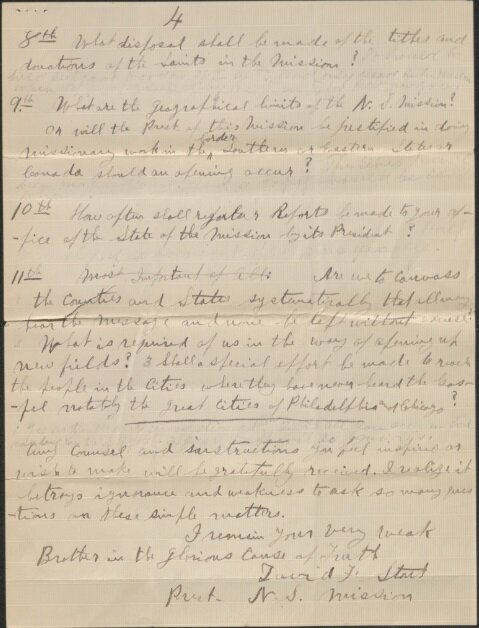 4
8th What disposal shall be made of the titles and
donations of the Saints in the Mission?
9th What are the geographical limits of the N. S. Mission?
or will the Prest of this Mission be justified in doing
missionary work in the border Southern or Eastern States or
Canada should an opening occur?
10th How often shall regular Reports be made to your of-
-fice of the State of the Mission by its President?
11th Most Important of all: Are we to canvass
the Counties and States systematically that all may
hear the Message and none be left without excuse?
What is required of us in the way of opening up
new fields? & Shall a special effort be made to reach
the people in the Cities where they have never heard the Gos-
-pel notably the great Cities of Philadelphia & Chicago?
Any Counsel and instructions you feel inspired or
wish to make will be gratefully received. I realize it
betrays ignorance and weakness to ask so many ques
-tions on these simple matters.
I remain your very weak
Brother in the Glorious Cause of Truth
David F. Stout
Prest. N. S. Mission